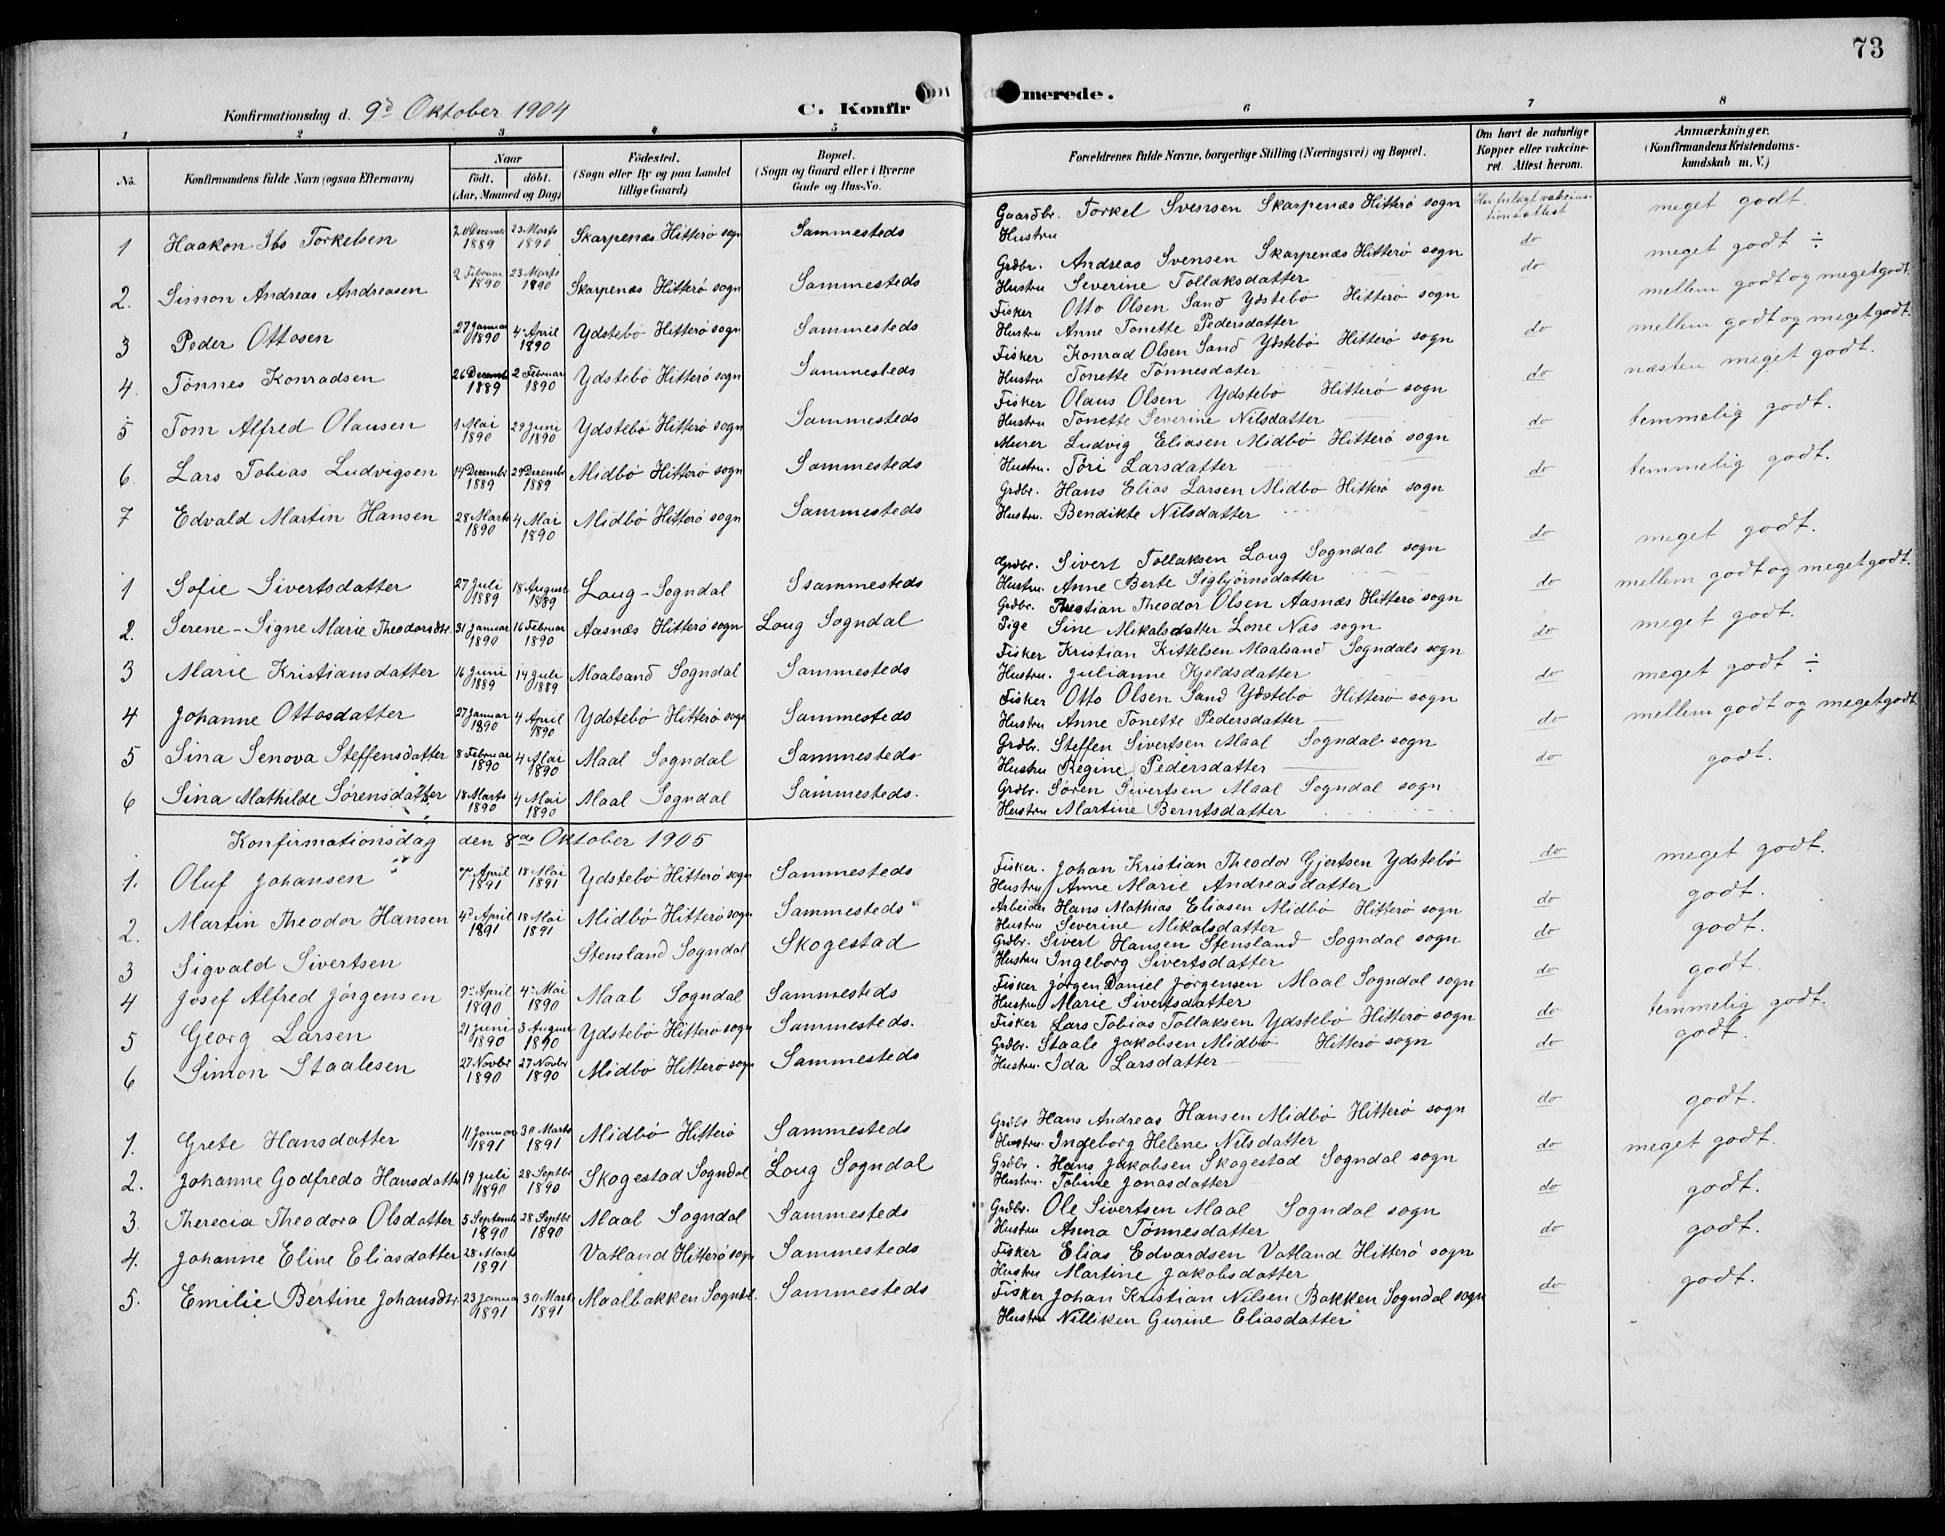 73
Konfirmationsdag d. 9d Oktober 1904
C. Konfir merede.
1 2 3 4 5 6 7 8
No.
Konfirmandens fulde Navn (ogsaa Efternavn)
Naar
Födt. döbt.
(Aar, Maaned og Dag)
Födested.
(Sogn eller By og paa Landet
tillige Gaard)
Bopæl.
(Sogn og Gaard eller i Byerne
Gade og Hus-No.
Forældrenes fulde Navne, borgerlige Stilling (Næringsvei) og Bopæl.
Om havt de naturlige
Kopper eller vakcine-
ret. Attest herom.
Anmærkninger.
(Konfirmandens Kristendoms-
kundskab m. V.)
1 Haakon Ibs Torkelsen 20 Decembr 1889 23 Marts 1890 Skarpenæs Hitterö sogn Sammesteds Gaardbr. Torkel Svensen Skarpenæs Hitterö sogn Har fretagt vakcinationsattest meget godt.
Hustru
2. Simon Andreas Andreasen 2 Februar 1890 23 Marts 1890 Skarpenæs Hitterö sogn Sammesteds Grdbr. Andreas Svensen Skarpenæs Hitterö sogn do meget godt ÷
Hustru Severine Tollaksdatter
3 Peder Ottosen 27 Januar 1890 4 April 1890 Ydstebö Hitterö sogn Sammesteds Fisker Otto Olsen Sand Ydstebö Hitterö sogn do mellem godt og meget godt.
Hustru Anne Tonette Pedersdatter
4. Tönnes Konradsen 26 Decemb 1889 2 Februar 1890 Ydstebö Hitterö sogn Sammesteds Fisker Konrad Olsen Sand Ydstebö Hitterö sogn do mellem godt og meget godt.
Hustru Tonette Tönnesdater
5 Tom Alfred Olausen 1 Mai 1890 29 Juni 1890 Ydstebö Hitterö sogn Sammesteds Fisker Olaus Olsen Ydstebö Hitterö sogn do næsten meget godt.
Hustru Tonette Severine Nilsdatter
6. Lars Tobias Ludvigsen 14 Decembr 1889 29 Decembr 1889 Midbö Hitterö sogn Sammesteds Murer Ludvig Eliasen Midbö Hitterö sogn do temmelig godt.
Hustru. Töri Larsdatter
7 Edvald Martin Hansen 28 Marts 1890 4 Mai 1890 Midbö Hitterö sogn Sammesteds Grdbr. Hans Elias Larsen Midbö Hitterö sogn do temmelig godt.
Hustru. Bendikte Nilsdatter
1 Sofie Sivertsdatter 27 Juli 1889 18 August 1889 Loug - Sogndal Ssammesteds Grdbr. Sivert Tollaksen Loug Sogndal sogn do meget godt.
Hustru Anne Berte Sigbjörnsdatter
2. Serene - Signe Marie Theodorsdtr. 31 Januar 1890 16 Februar 1890 Aasnæs Hitterö sogn Loug Sogndal Grdbr. Theodor Olsen Aasnæs Hitterö sogn do mellem godt og meget godt.
Pige Sine Mikalsdatter Lone Næs sogn
3 Marie Kristiansdatter 16 Juni 1889 14 Juli 1889 Maalsand Sogndal Sammesteds Fisker Kristian Kittelsen Maalsand Sogndals sogn do meget godt.
Hustru. Julianne Kjeldsdatter
4 Johanne Ottosdatter 27 Januar 1890 4 April 1890 Ydstebö Hitterö sogn Sammesteds Fisker Otto Olsen Sand Ydstebö Hitterö sogn do meget godt ÷
Hustru Anne Tonette Pedersdatter
5 Sina Senova Steffensdatter 8 Februar 1890 4 Mai 1890 Maal Sogndal Sammesteds Grdbr. Steffen Sivertsen Maal Sogndal sogn do mellem godt og meget godt
Hustru Regine Pedersdatter
6 Sina Mathilde Sörensdatter 18 Marts 1890 4 Mai 1890 Maal Sogndal Sammesteds. Grdbr. Sören Sivertsen Maal Sogndal sogn do godt.
Hustru Martine Berntsdatter
Konfirmationsdag den 8de Oktober 1905
1. Oluf Johansen 7de April 1891 18 Mai 1891 Ydstebö Hitterö sogn Sammesteds Fisker. Johan Kristian Theodor Gjertsen Ydstebö do meget godt.
Hustru Anne Marie Andreasdatter
2. Martin Theodor Hansen 4d April 1891 18 Mai 1891 Midbö Hitterö sogn Sammesteds Arbeider Hans Mathias Eliasen Midbö Hitterö sogn do godt.
Hustru Severine Mikalsdatter
3 Sigvald Sivertsen Stensland Sogndal Skogestad Grdbr. Sivert Hansen Stensland Sogndal sogn do godt.
Hustru Ingeborg Sivertsdatter
4 Josef Alfred Jörgensen 9d April 1890 4d Mai 1890 Maal Sogndal Sammesteds Fisker Jörgen Daniel Jörgensen Maal Sogndal sogn do godt.
Hustru Marie Sivertsdatter
5 Georg Larsen 21 Juni 1890 3 August 1890 Ydstebö Hitterö sogn Sammesteds. Fisker Lars Tobias Tollaksen Ydstebö Hitterö sogn do temmelig godt.
6 Simon Staalesen 27 Novbr 1890 27 Novbr 1890 Midbö Hitterö sogn Sammesteds Grdbr. Staale Jakobsen Midbö Hitterö sogn do godt.
Hustru. Ida Larsdatter
1. Grete Hansdatter 11 Januar 1891 30 Marts 1891 Midbö Hitterö Sammesteds Grdbr Hans Andreas Hansen Midbö Hitterö sogn do godt.
Hustru. Ingeborg Helene Nilsdatter
2. Johanne Godfreda Hansdatter 19 Juli 1890 28 Septbr 1890 Skogestad Sogndal Loug Sogndal Grdbr. Hans Jakobsen Skogestad Sogndal sogn do meget godt.
Hustru. Tobine Jonasdatter
3. Therecia Theodora Olsdatter 5 Septemb 1890 28 Septbr 1890 Maal Sogndal Sammesteds Grdbr. Ole Sivertsen Maal Sogndal sogn do godt.
Hustru Asma Tönnesdatter
4. Johanne Eline Eliasdatter 28 Marts 1891 Vatland Hitterö sogn Sammesteds Fisker Elias Edvardsen Vatland Hitterö sogn do godt.
Hustru Martine Jakobsdatter
5. Emilie Bertine Johansdtr. 23 Januar 1891 30 Marts 1891 Maalbakken Sogndl. Sammesteds Fisker Johan Kristian Nilsen Bakken Sogndal sogn do godt.
Hustru Nilliken Gurine Eliasdatter